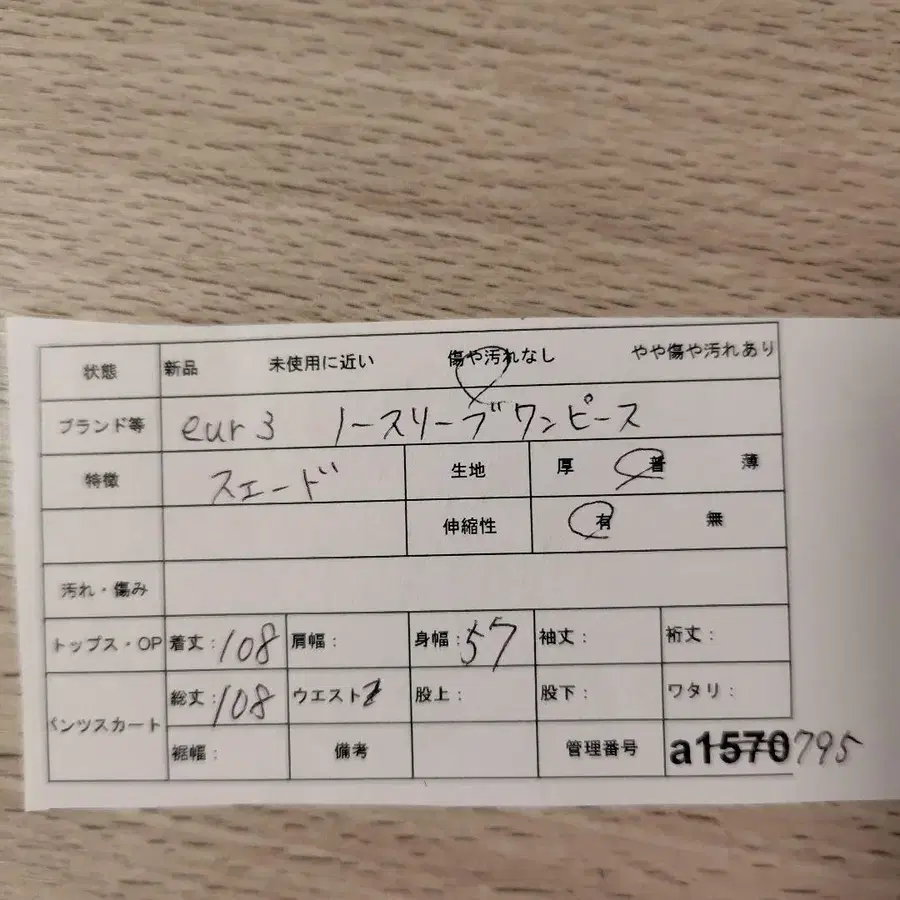 状態 新品 未使用に近い 傷や汚れなし やや傷や汚れあり
ブランド等 eur3 ノースリーブワンピース
特徴 スエード 生地 厚 普 薄
伸縮性 有 無
汚れ・傷み
トップス・OP 着丈:108 肩幅: 身幅:57 袖丈: 裄丈:
パンツスカート 総丈:108 ウエスト 股上: 股下: ワタリ:
裾幅: 備考 管理番号 a1570795